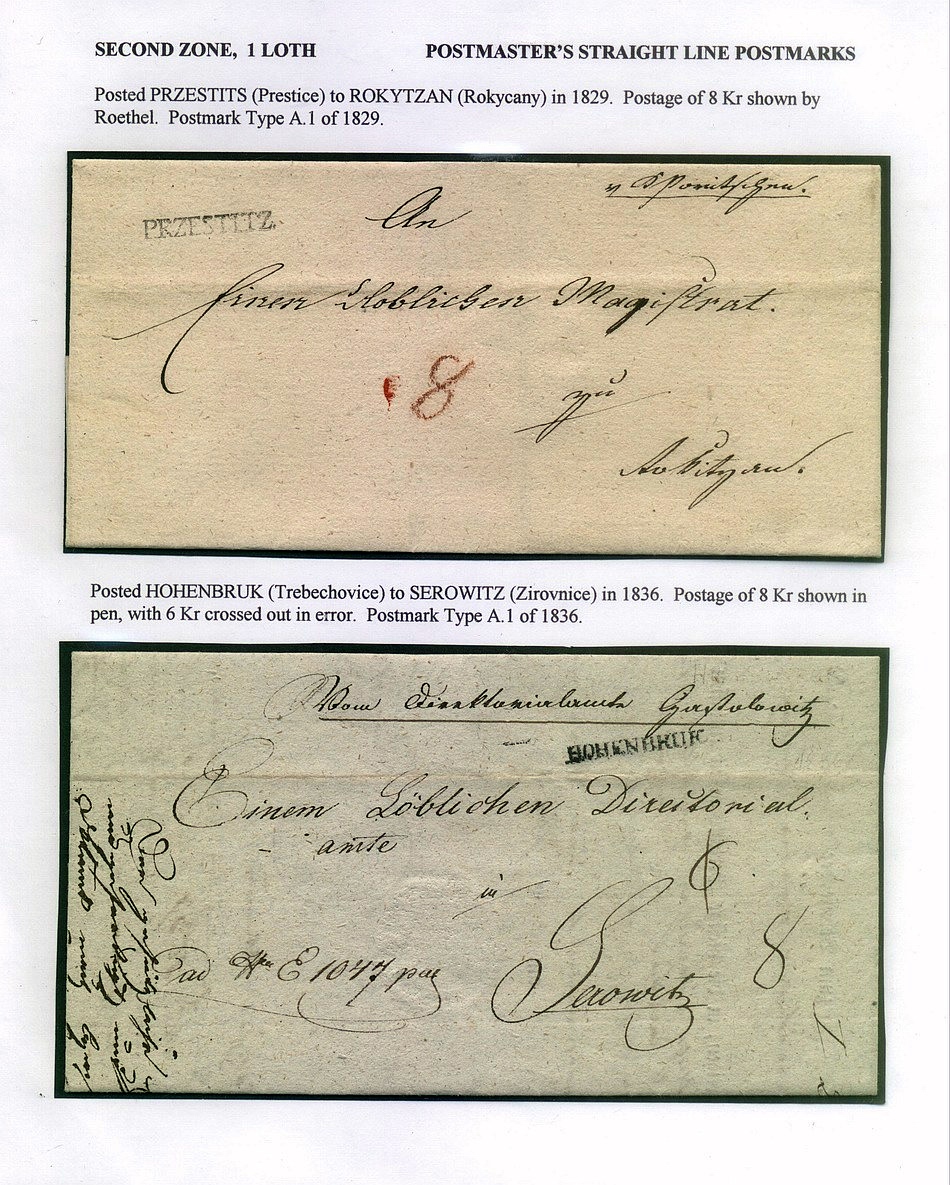 SECOND ZONE, 1 LOTH POSTMASTER'S STRAIGHT LINE POSTMARKS
Posted PRZESTITS (Prestice) to ROKYTZAN (Rokycany) in 1829. Postage of 8 Kr shown by
Roethel. Postmark Type A.1 of 1829.
PRZESTITZ.
An
Einen Magistrat.
8
zu
Rokitzan.
Posted HOHENBRUK (Trebechovice) to SEROWITZ (Zirovnice) in 1836. Postage of 8 Kr shown in
pen, with 6 Kr crossed out in error. Postmark Type A.1 of 1836.
Vom Direktorialamte Gastolowitz
HOHENBRUK
Einem Löblichen Directorial
amte
6
in
8
ad E 1047
Serowitz